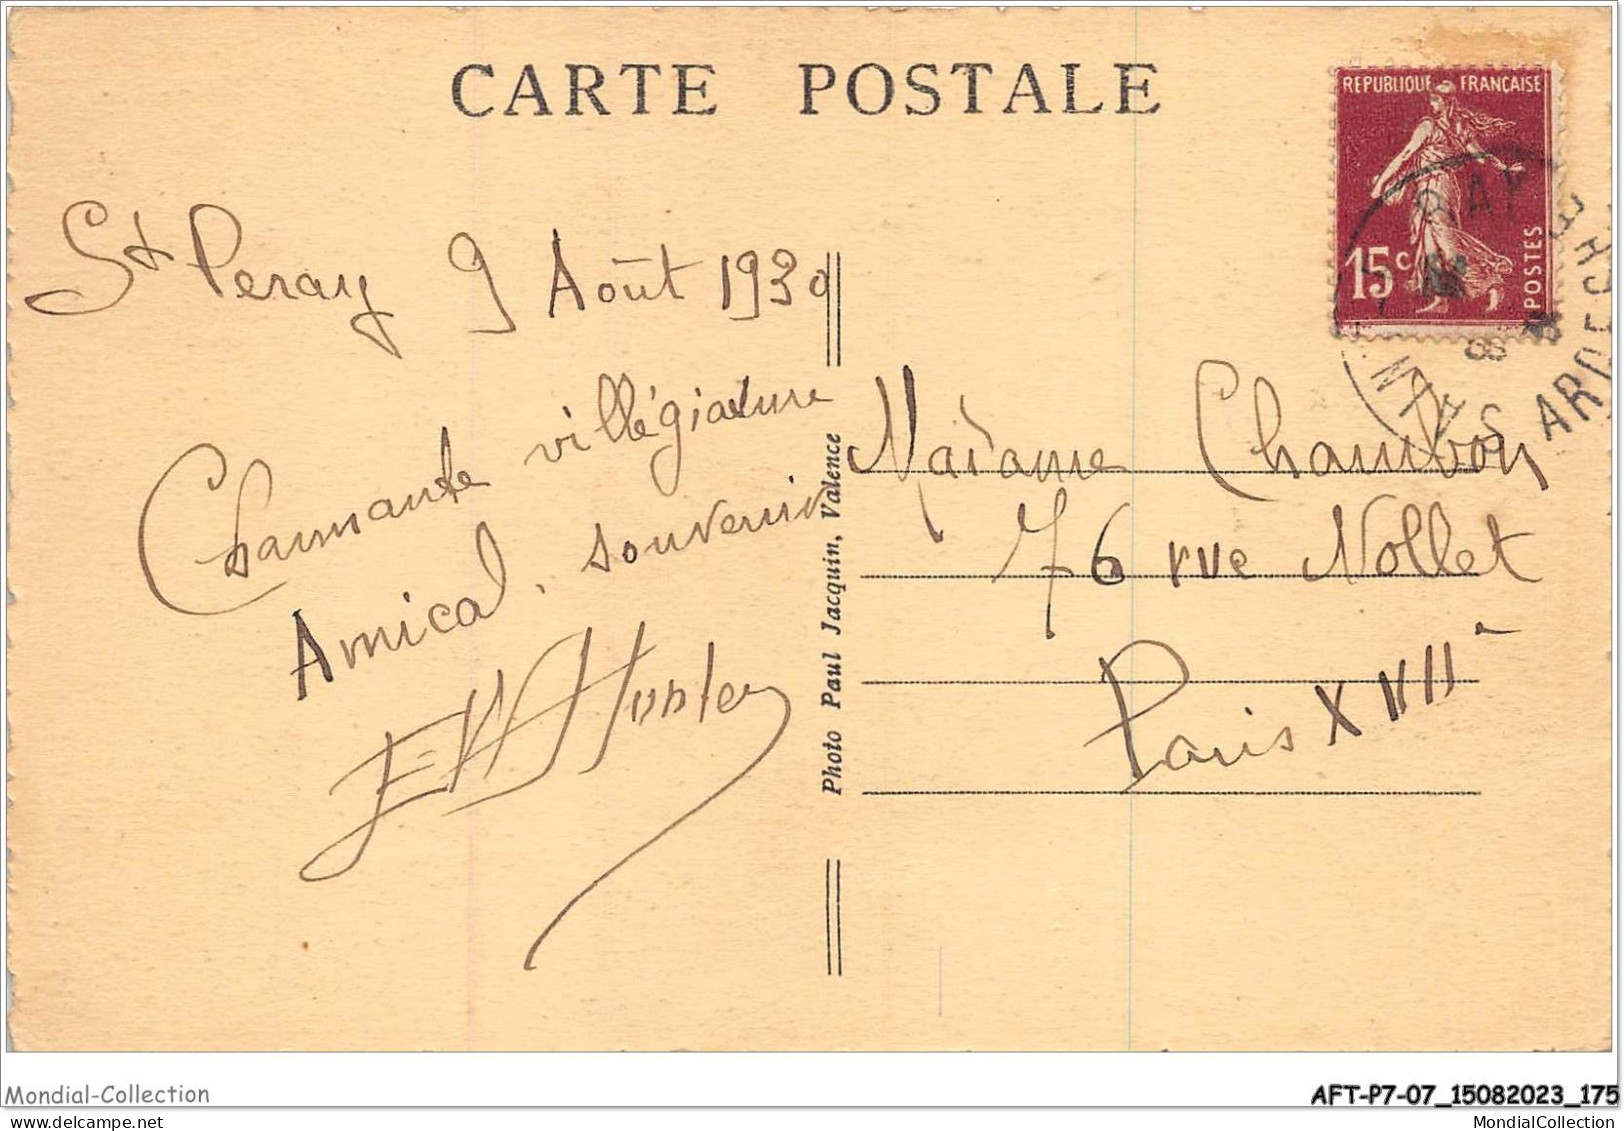 CARTE POSTALE
RÉPUBLIQUE FRANÇAISE
15c
POSTES
ARDECHE
St Peray 9 Août 1930
Charmante villégiature
Amical souvenir
Photo Paul Jacquin, Valence
Madame Chambon
76 rue Nollet
Paris XVIIe
Mondial-Collection
AFT-P7-07_15082023_175
MondialCollection